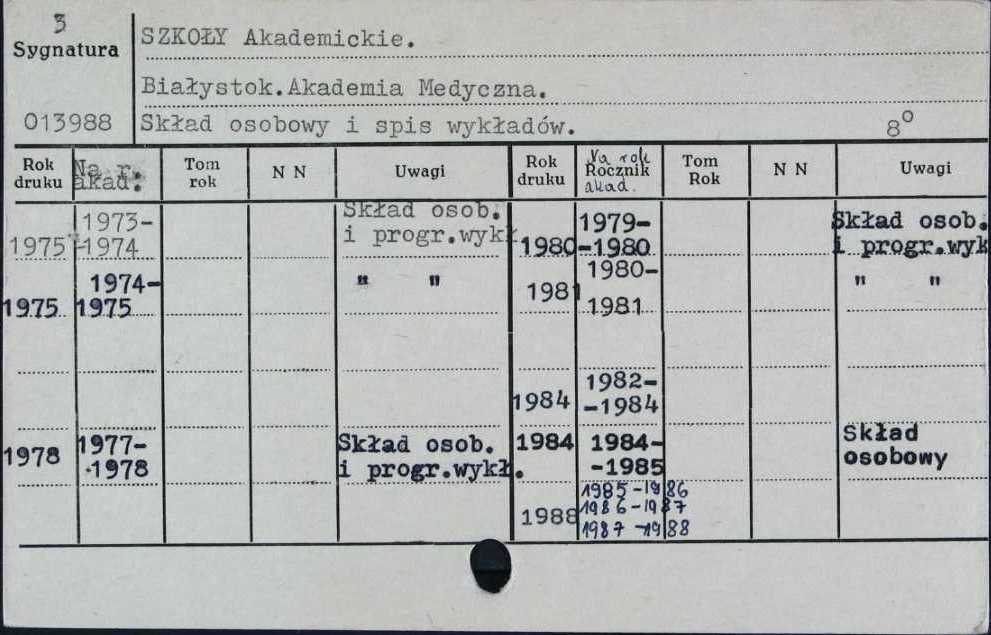 3
Sygnatura
SZKOŁY Akademickie.
Białystok.Akademia Medyczna.
013988
Skład osobowy i spis wykładów.
8°
Rok druku
Na r. akad:
Tom rok
N N
Uwagi
Rok druku
Na rok
Rocznik
akad.
Tom Rok
N N
Uwagi
1973-
1975 -1974
Skład osob.
i progr.wykł
1974-
1975 1975
" "
1978
1977-
-1978
Skład osob.
i progr.wykł.
1979-
1980 -1980
Skład osob.
i progr.wyk
1980-
1981
1981
" "
1982-
1984 -1984
1984 1984-
-1985
Skład
osobowy
1985-1986
1986-1987
1988
1987-1988